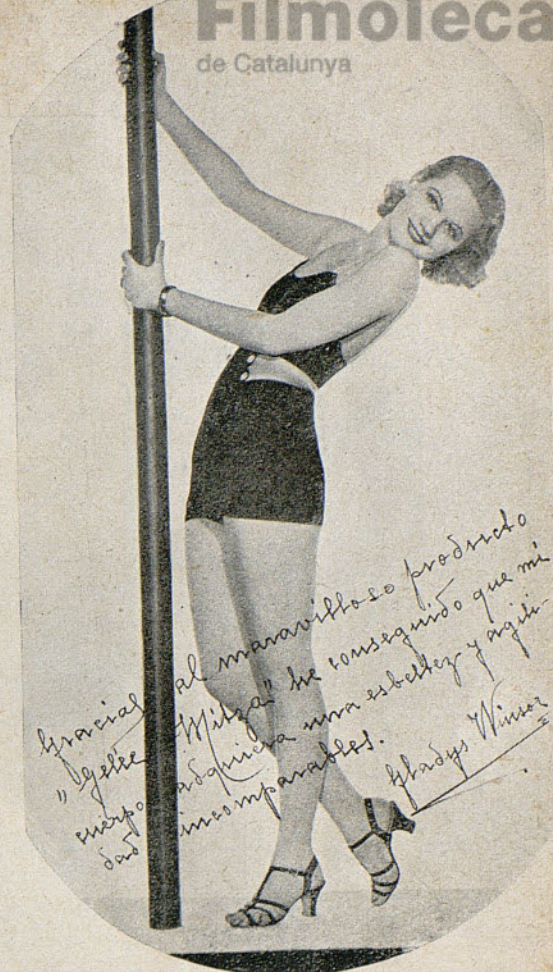 Filmoteca
de Catalunya
Gracias al maravilloso producto
"Gelée Mitza" he conseguido que mi
cuerpo adquiera una esbeltez y agili-
dad incomparables.
Gladys Winsor